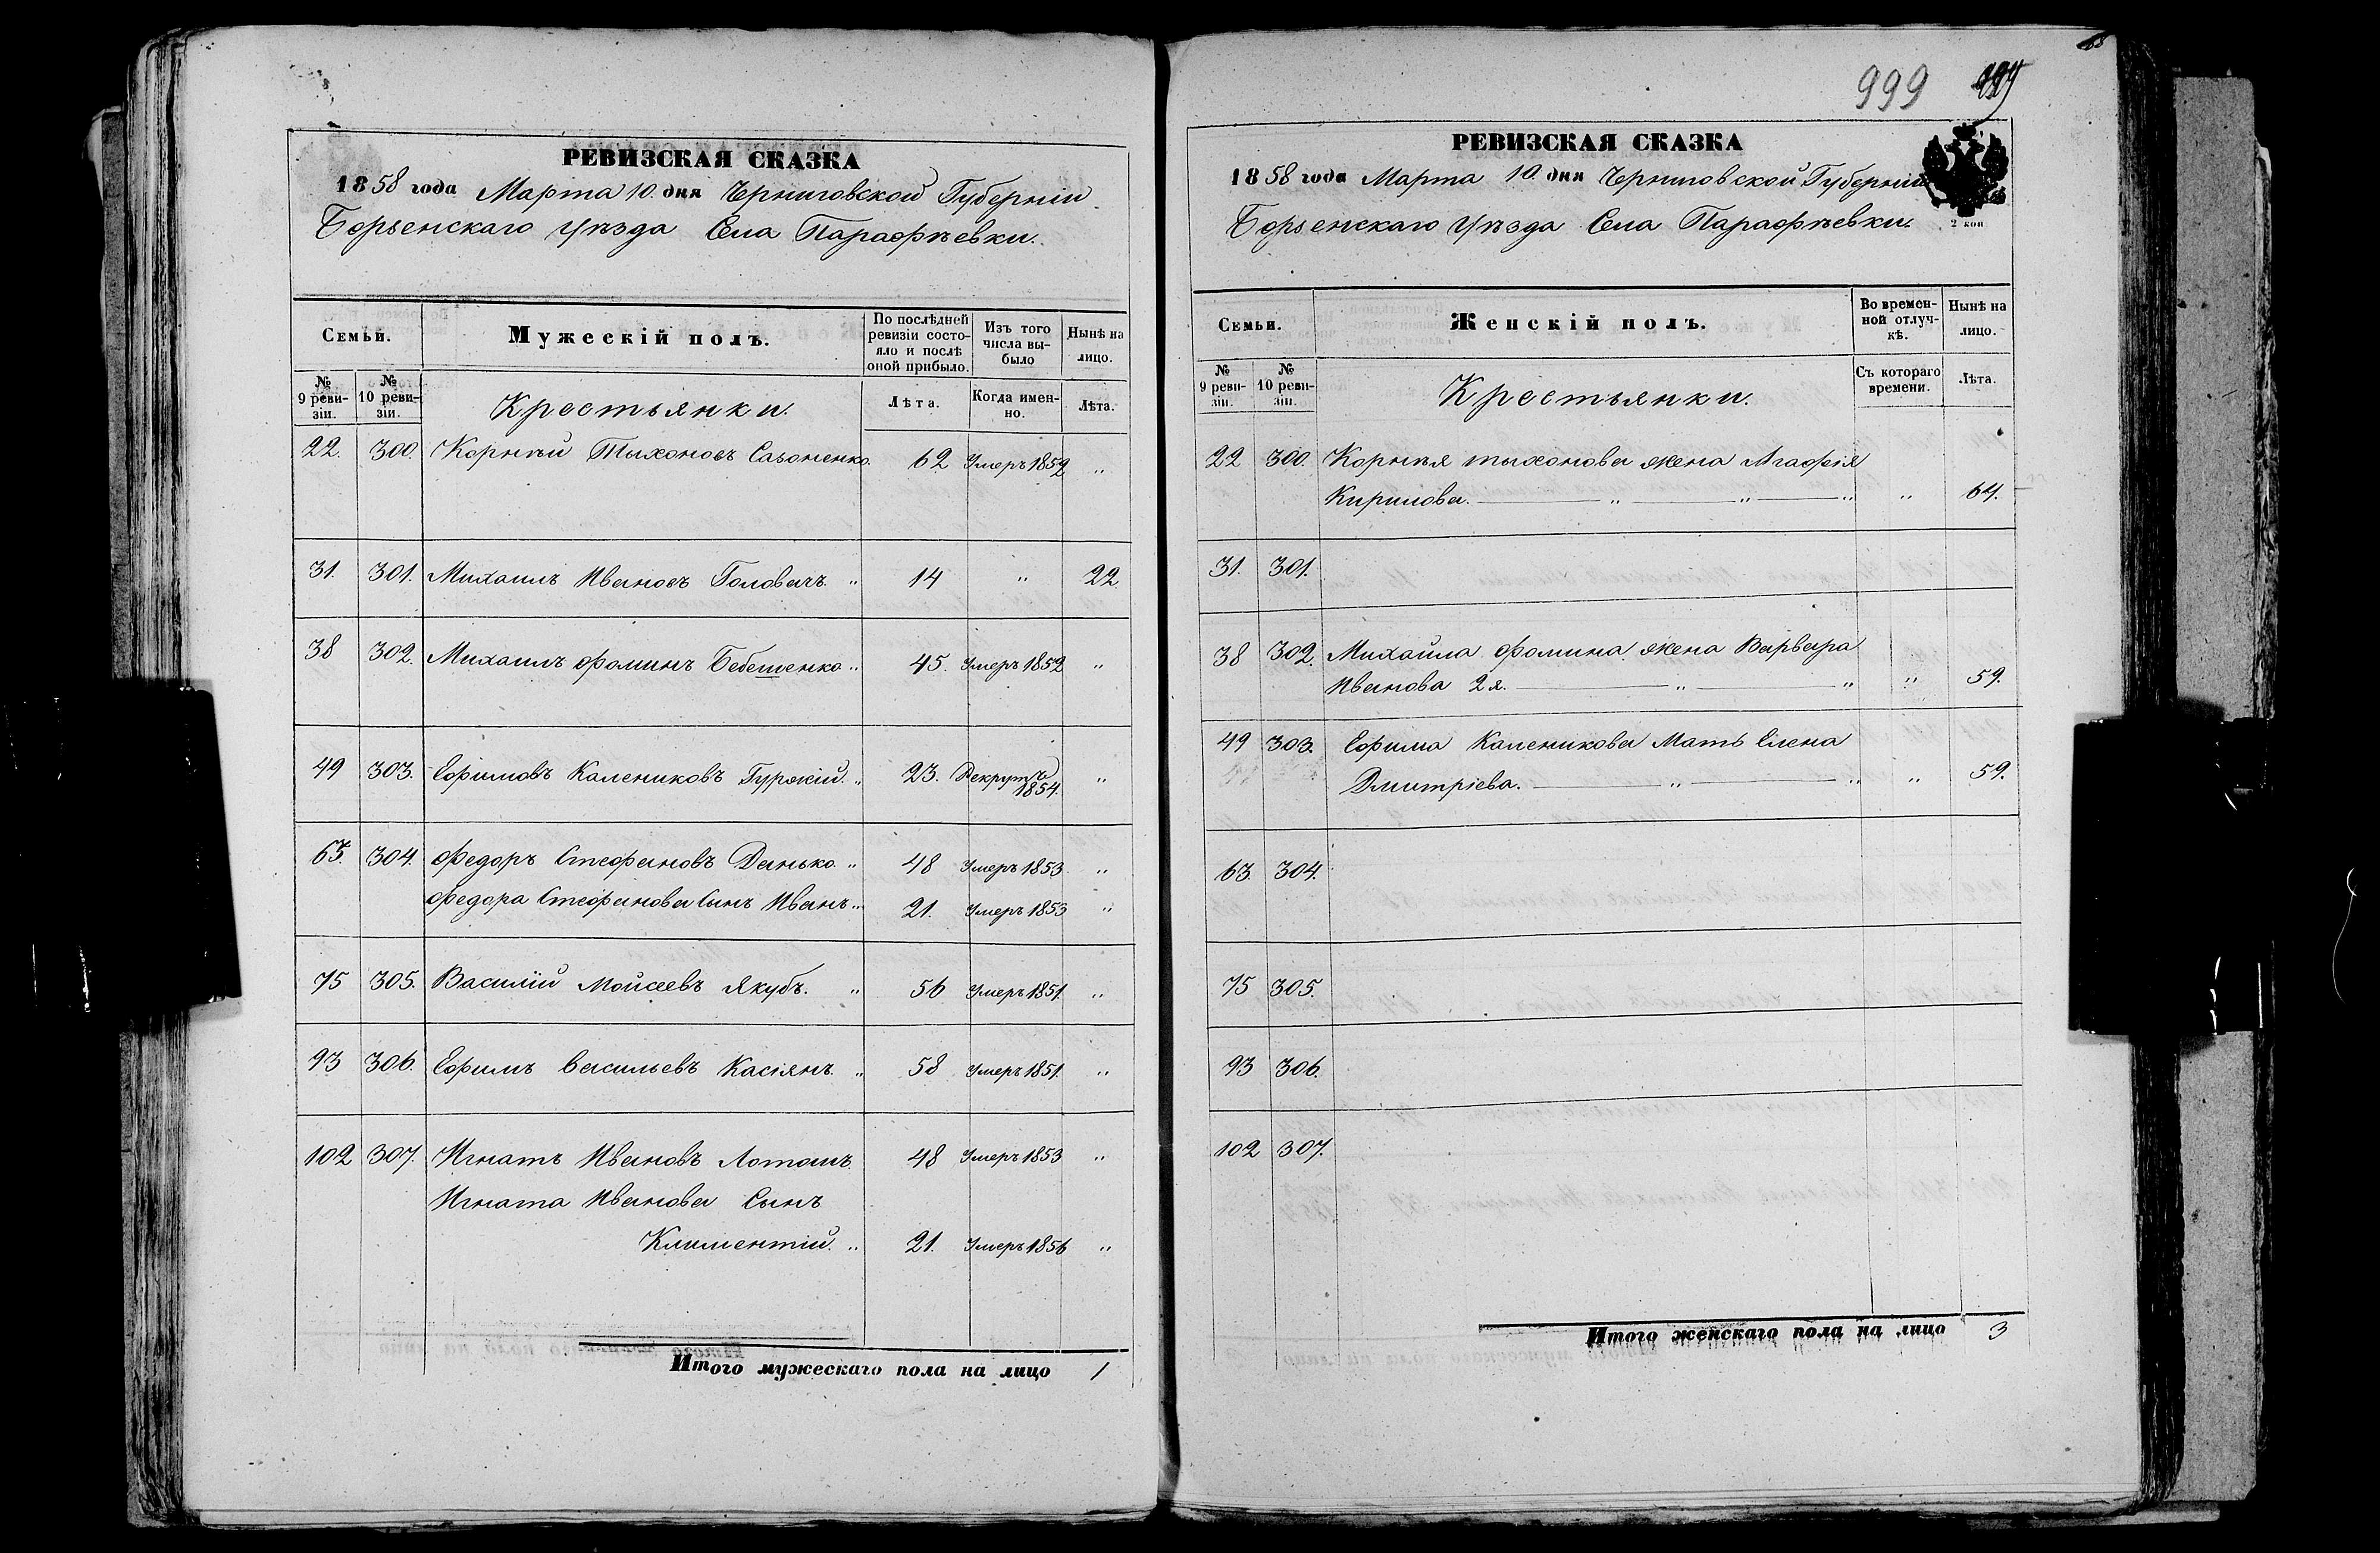 РЕВИЗСКАЯ СКАЗКА
1858 года Марта 10. дня Черниговской Губерніи
Борзенскаго Уѣзда Села Парафѣевки.
Семьи.
Мужескій полъ.
По послѣдней ревизіи состояло и послѣ оной прибыло.
Изъ того числа выбыло
Нынѣ на лицо.
№ 9 ревизіи.
№ 10 ревизіи.
Крестьянки.
Лѣта.
Когда именно.
Лѣта.
22. 300. Корнѣй Тыхоновъ Сазоненко. 62 Умеръ 1852 „
31. 301. Михаилъ Ивановъ Головачъ „ 14 „ 22
38 302. Михаилъ Фоминъ Бебешенко „ 45. Умеръ 1852 „
49 303. Ефимовъ Калениковъ Гуржій. „ 23. Рекрутъ 1854. „
63. 304. Федоръ Стефановъ Данько. „ 48 Умеръ 1853 „
Федора Стефанова Сынъ Иванъ „ 21. Умеръ 1853 „
75 305. Василій Мойсеевъ Якубъ. „ 56 Умеръ 1851. „
93 306. Ефимъ Васильевъ Касіянъ. „ 58 Умеръ 1851. „
102 307. Игнатъ Ивановъ 48 Умеръ 1853 „
Игната Иванова Сынъ
Климентій. „ 21. Умеръ 1856 „
Итого мужескаго пола на лицо 1
999
РЕВИЗСКАЯ СКАЗКА
1858 года Марта 10. дня Черниговской Губерніи
Борзенскаго Уѣзда Села Парафѣевки.
2 коп
Семьи.
Женскій полъ.
Во временной отлучкѣ.
Нынѣ на лицо.
№ 9 ревизіи.
№ 10 ревизіи.
Крестьянки.
Съ котораго времени.
Лѣта.
22 300. Корнѣя тыхонова жена Агафія
Кирилова. „ „ „ „ 64.
31. 301.
38 302. Михаила Фомина жена Варвара
Иванова 2я. „ „ „ 59.
49 303. Ефима Каленикова Мать Елена
Дмитріева. „ „ „ 59.
63. 304.
75 305.
93 306.
102 307.
Итого женскаго пола на лицо 3